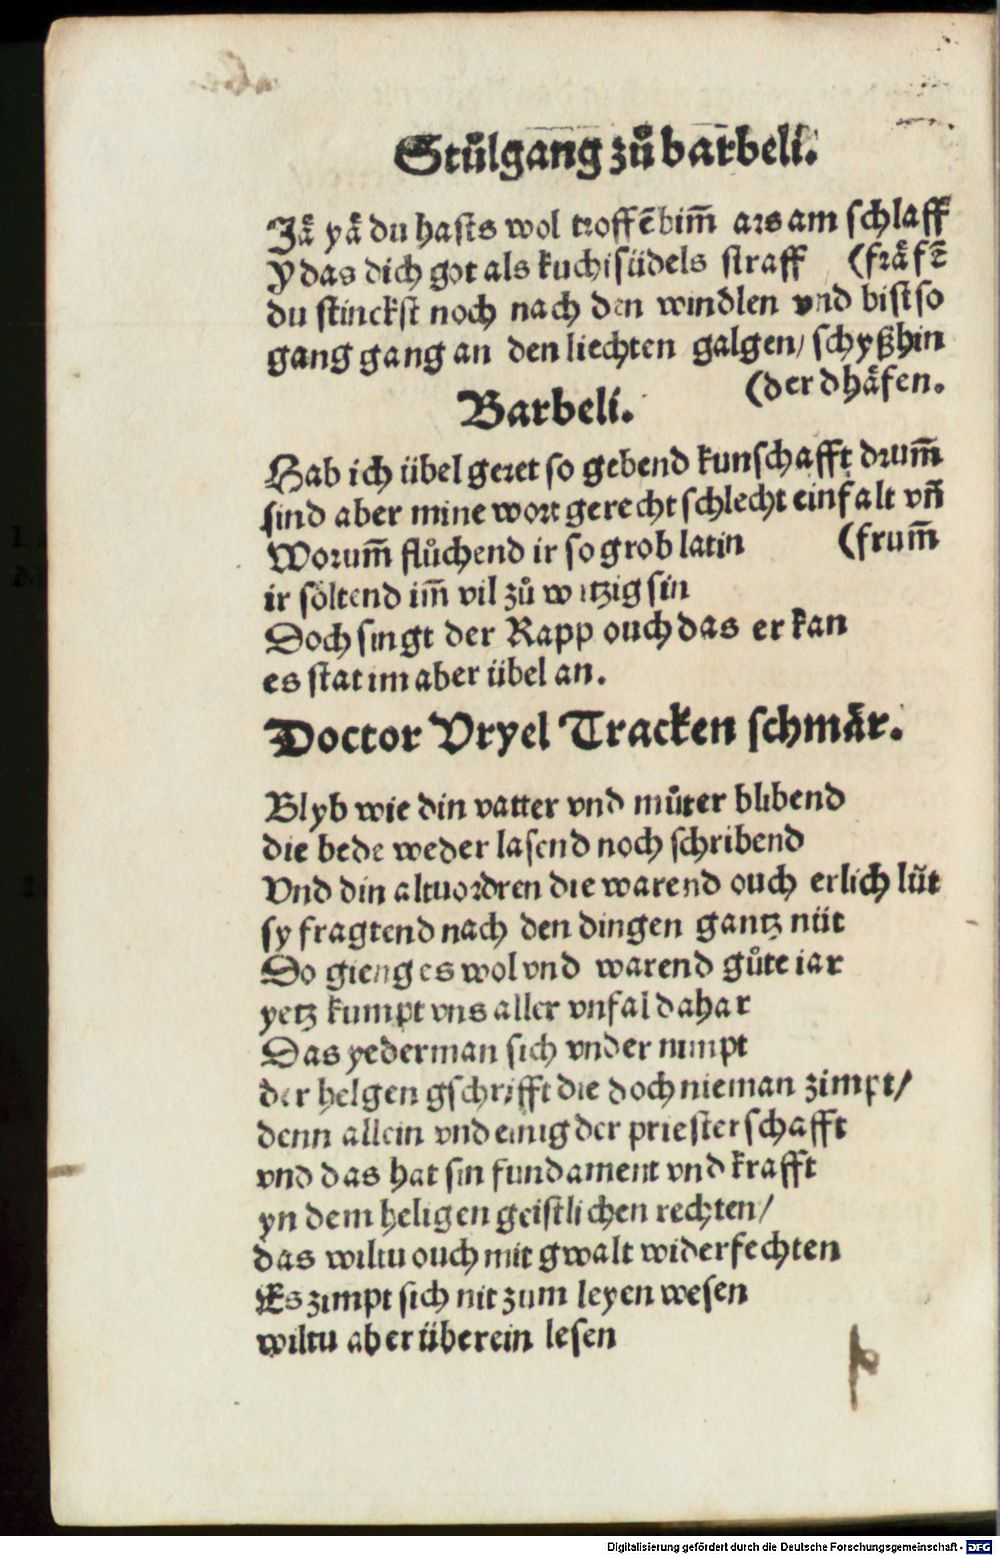 Stůlgang zů barbeli.
Jaͤ yaͤ du hasts wol troffē bim̄ ars am schlaff
Y das dich got als kuchisüdels straff (fraͤfē
du stinckst noch nach den windlen vnd bist so
gang gang an den liechten galgen/ schyßhin
(der dhaͤfen.
Barbeli.
Hab ich übel geret so gebend kunschafft drum̄
sind aber mine wort gerecht schlecht einfalt vn̄
Worum̄ flůchend ir so grob latin (frum̄
ir soͤltend im̄ vil zů witzig sin
Doch singt der Rapp ouch das er kan
es stat im aber übel an.
Doctor Vryel Tracken schmaͤr.
Blyb wie din vatter vnd můter blibend
die bede weder lasend noch schribend
Vnd din altuordren die warend ouch erlich lüt
sy fragtend nach den dingen gantz nüt
Do gieng es wol vnd warend gůte iar
yetz kumpt vns aller vnfal dahar
Das yederman sich vnder nimpt
der helgen gschrifft die doch nieman zimpt/
denn allein vnd einig der priesterschafft
vnd das hat sin fundament vnd krafft
yn dem heligen geistlichen rechten/
das wiltu ouch mit gwalt widerfechten
Es zimpt sich nit zum leyen wesen
wiltu aber überein lesen
Digitalisierung gefördert durch die Deutsche Forschungsgemeinschaft - DFG